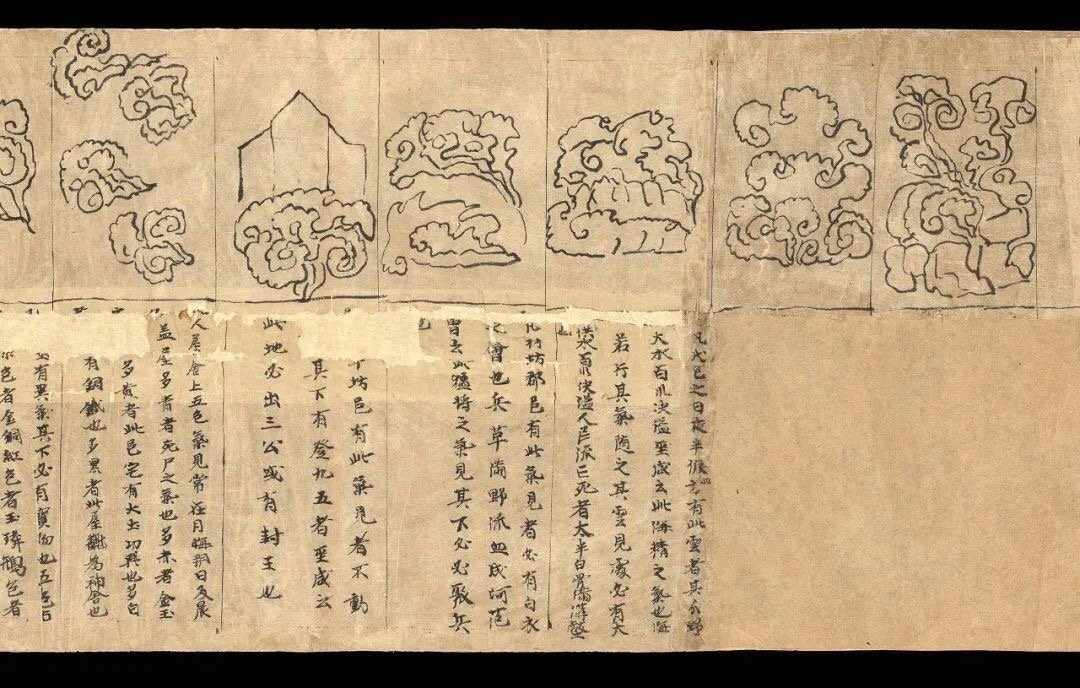 凡戊己之日夜半候之有此雲者其分野
大水百川决溢巫咸云此海精之氣也海
若行其氣随之其雲見處必有大
洪水百川决溢人民流亡死者太半白骨滿溝壑
村坊郡邑有此氣見者必有白衣
之會也兵革滿野流血成河范
曾云此猛將之氣見其下必必聚兵
坊邑有此氣見者不動
其下有登九五者巫咸云
此地必出三公或有封王也
人屋舍上五色氣見常在月晦朔日及晨
盖屋多青者死尸之氣也多赤者金玉
多黄者此邑宅有火土功興也多白
有銅鐵也多黑者此屋為神居也
有異氣其下必有寶物也五色
色者金銅紅色者玉色者